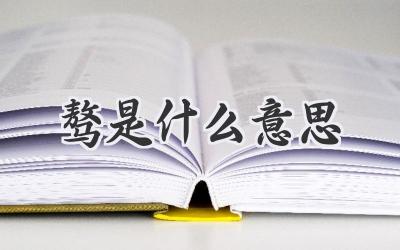 骜是什么意思